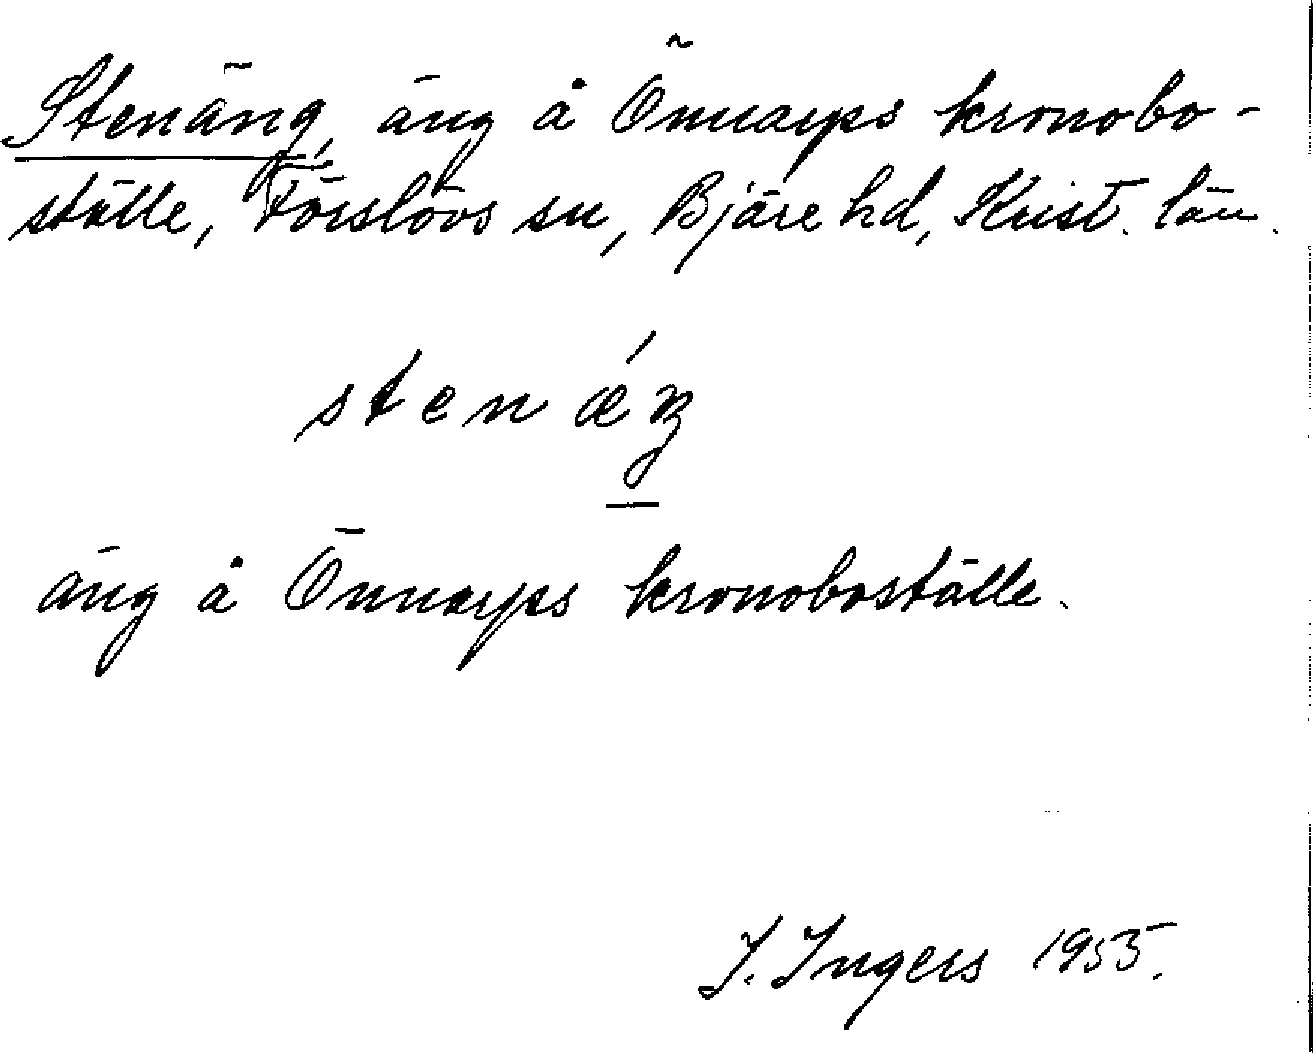 Stenäng, äng å Önnarps kronobo-
ställe, Förslövs sn, Bjäre hd, Krist. län.
stenǽŋ
äng å Önnarps kronoboställe.
I. Ingers 1955.